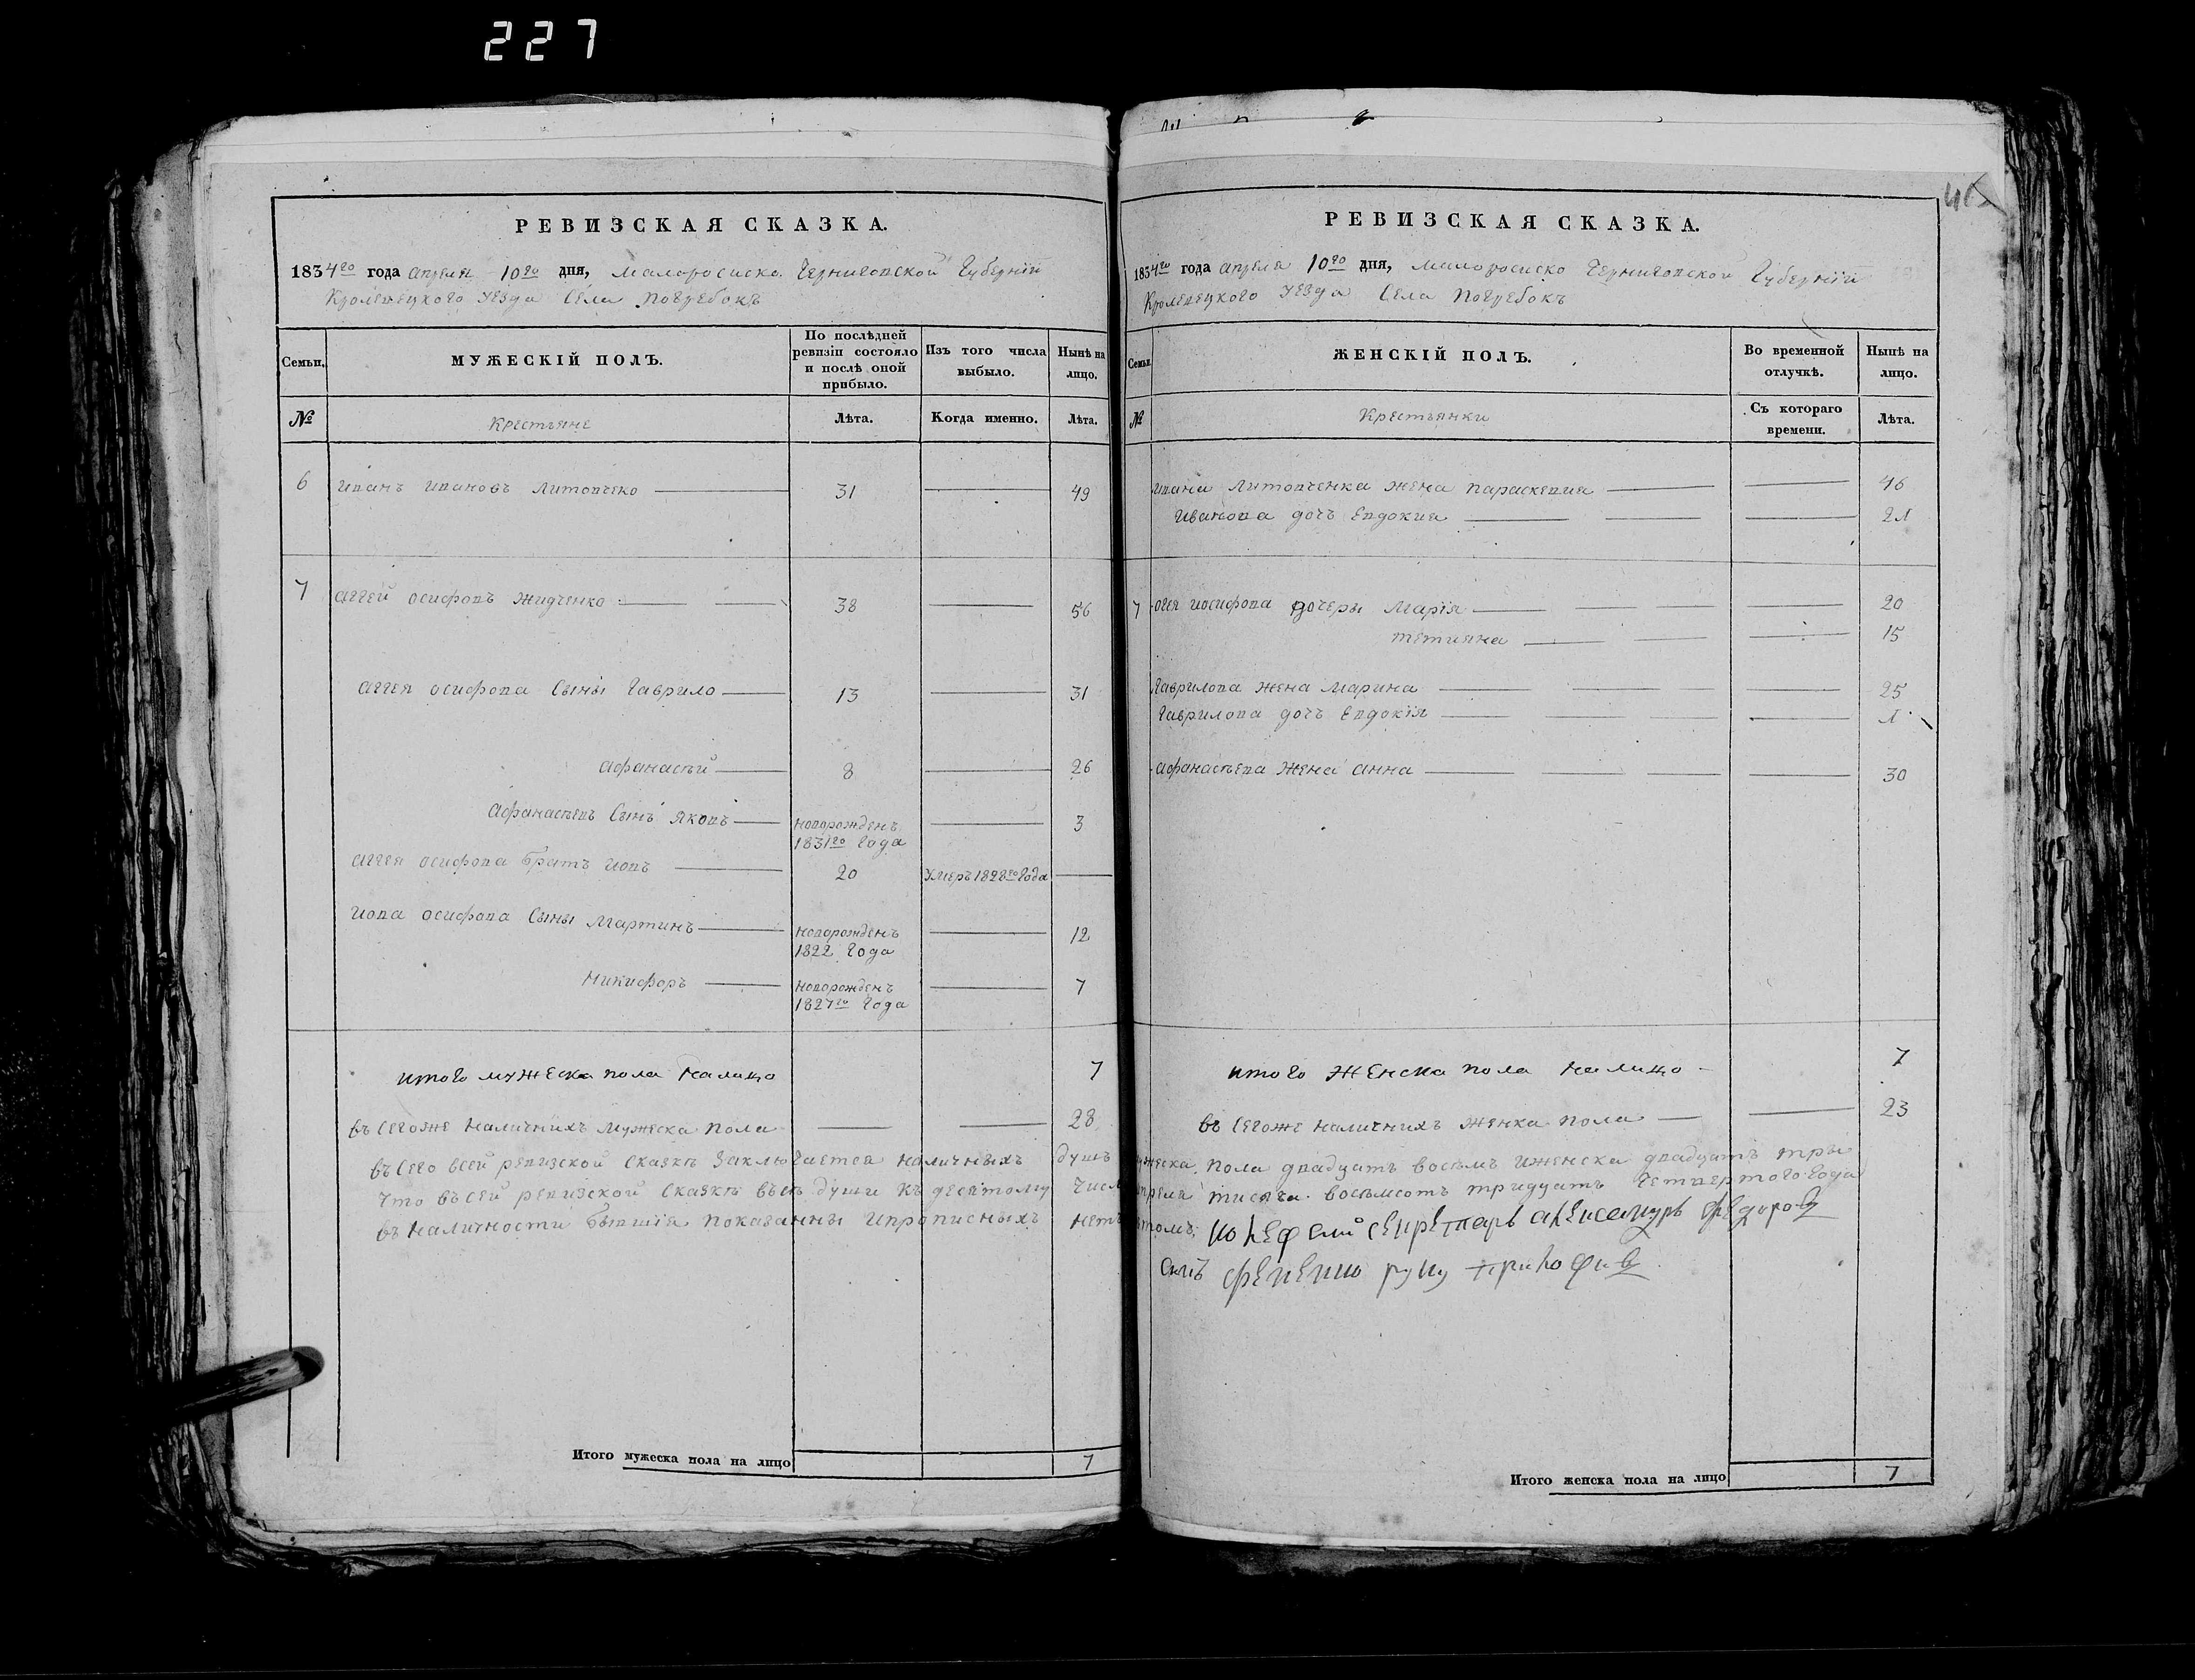 227
РЕВИЗСКАЯ СКАЗКА.
1834го года апреля 10го дня, малоросиско Черниговской Губернїи
Кролевецкого Уезда Села Погребокъ
Семьи.
МУЖЕСКІЙ ПОЛЪ.
По послѣдней ревизіи состояло и послѣ оной прибыло.
Изъ того числа выбыло.
Нынѣ на лицо.
№
Крестьяне
Лѣта.
Когда именно.
Лѣта.
6 иванъ ивановъ Литовченко 31 49
7 аггей осифовъ Жидченко 38 56
аггея осифова Сыны Гаврило 13 31
афанасъй 8 26
афанасъевъ Сынъ яковъ новорожденъ 1831го Года 3
аггея осифова братъ иовъ 20 Умеръ 1828го Года
иова осифова Сыны Мартинъ новорожденъ 1822 Года 12
Никифоръ новорожденъ 1827го Года 7
итого мужеска пола Налицо 7
въсегоже наличнихъ мужеска пола 28
въсего всей ревизской сказкѣ Заключается наличныхъ душъ
Что въсей ревизской Сказкѣ въсѣ души къ десятому Числ
въ наличности бывшїя показанны ипрописныхъ нетъ
Итого мужеска пола на лицо 7
РЕВИЗСКАЯ СКАЗКА.
1834го года апреля 10го дня, малоросиско Черниговской Губернїи
Кролевецкого Уезда Села Погребокъ
Семьи.
ЖЕНСКІЙ ПОЛЪ.
Во временной отлучкѣ.
Нынѣ на лицо.
№
Крестьянки
Съ котораго времени.
Лѣта.
ивана Литовченка жена параскевия 46
иванова дочъ Евдокия 21
7 огея иосифова дочеры Марїя 20
тетияна 15
Гаврилова жена марина 25
Гаврилова дочъ Евдокїя 1
афанасъева жена анна 30
итого женска пола налицо 7
въ сегоже наличнихъ женка пола 23
мужеска пола двадцать восъмъ иженска двадцать тры
апреля тисяча восъмсотъ тридцать Четвертого Года
секретарь Федоровъ
руку приложив
Итого женска пола на лицо 7